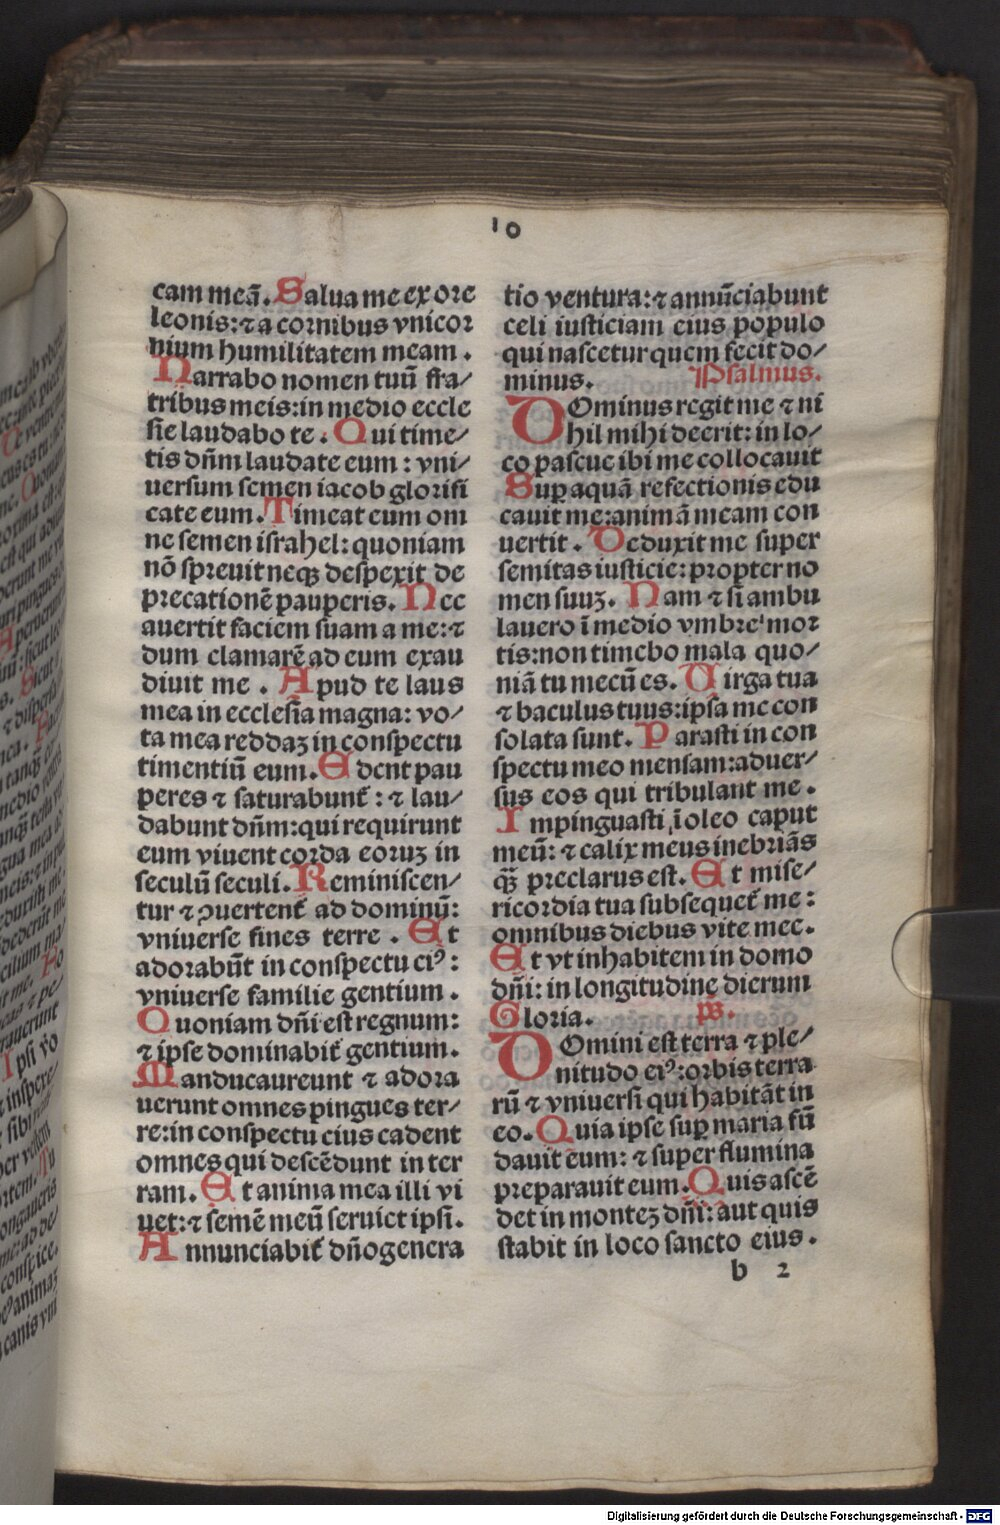 10
cam meã. Salua me ex ore
leonis: ⁊ a cornibus vnicoꝛ
nium humilitatem meam.
Narrabo nomen tuũ fra/
tribus meis: in medio eccle
sie laudabo te. Qui time/
tis dñm laudate eum: vni/
uersum semen iacob glorifi
cate eum. Timeat eum om
ne semen israhel: quoniam
nõ spreuit neqꝫ despexit de
precationẽ pauperis. Nec
auertit faciem suam a me: ⁊
dum clamarẽ ad eum exau
diuit me. Apud te laus
mea in ecclesia magna: vo/
ta mea reddaꝫ in conspectu
timentiũ eum. Edent pau
peres ⁊ saturabunt̃: ⁊ lau/
dabunt dñm: qui requirunt
eum viuent corda eoruꝫ in
seculũ seculi. Reminiscen/
tur ⁊ ꝯuertent̃ ad dominũ:
vniuerse fines terre. Et
adorabũt in conspectu eiꝰ:
vniuerse familie gentium.
Quoniam dñi est regnum:
⁊ ipse dominabit̃ gentium.
Manducaureunt ⁊ adora
uerunt omnes pingues ter/
re: in conspectu eius cadent
omnes qui descẽdunt in ter
ram. Et anima mea illi vi
uet: ⁊ semẽ meũ seruiet ipsi.
Annunciabit̃ dño genera
tio ventura: ⁊ annũciabunt
celi iusticiam eius populo
qui nascetur quem fecit do/
minus. Psalmus.
DOminus regit me ⁊ ni
hil mihi deerit: in lo/
co pascue ibi me collocauit
Suꝑ aquã refectionis edu
cauit me: animã meam con
uertit. Deduxit me super
semitas iusticie: propter no
men suuꝫ. Nam ⁊ si ambu
lauero ĩ medio vmbre moꝛ
tis: non timebo mala quo/
niã tu mecũ es. Uirga tua
⁊ baculus tuus: ipsa me con
solata sunt. Parasti in con
spectu meo mensam: aduer/
sus eos qui tribulant me.
Impinguasti ĩ oleo caput
meũ: ⁊ calix meus inebriãs
qꝫ̃ preclarus est. Et mise/
ricordia tua subsequet̃ me:
omnibus diebus vite mee.
Et vt inhabitem in domo
dñi: in longitudinẽ dierum
Gloria. ps̃.
DOmini est terra ⁊ ple/
nitudo eiꝰ: orbis terra
rũ ⁊ vniuersi qui habitãt in
eo. Quia ipse suꝑ maria fũ
dauit eum: ⁊ super flumina
preparauit eum. Quis ascẽ
det in monteꝫ dñi: aut quis
stabit in loco sancto eius.
b 2
Digitalisierung gefördert durch die Deutsche Forschungsgemeinschaft - DFG